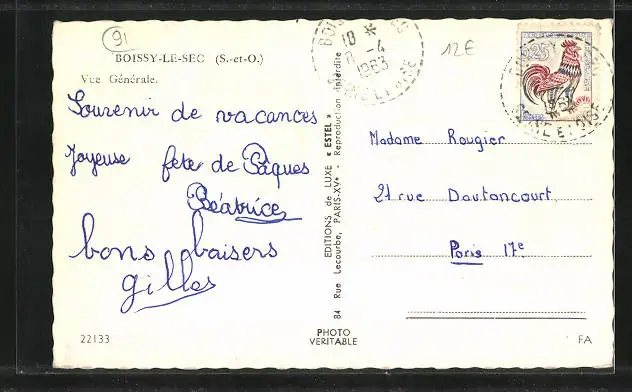 91
BOISSY-LE-SEC (S.-et-O.)
Vue Générale.
Souvenir de vacances
Joyeuse fête de Pâques
Béatrice
bons baisers
gilles
22133
EDITIONS de LUXE « ESTEL » - Reproduction interdite
84 Rue Lecourbe, PARIS-XVe
PHOTO
VERITABLE
10 *
-4
1963
12E
0,25
Madame Rougier
21 rue Dautancourt
Paris 17e
FA